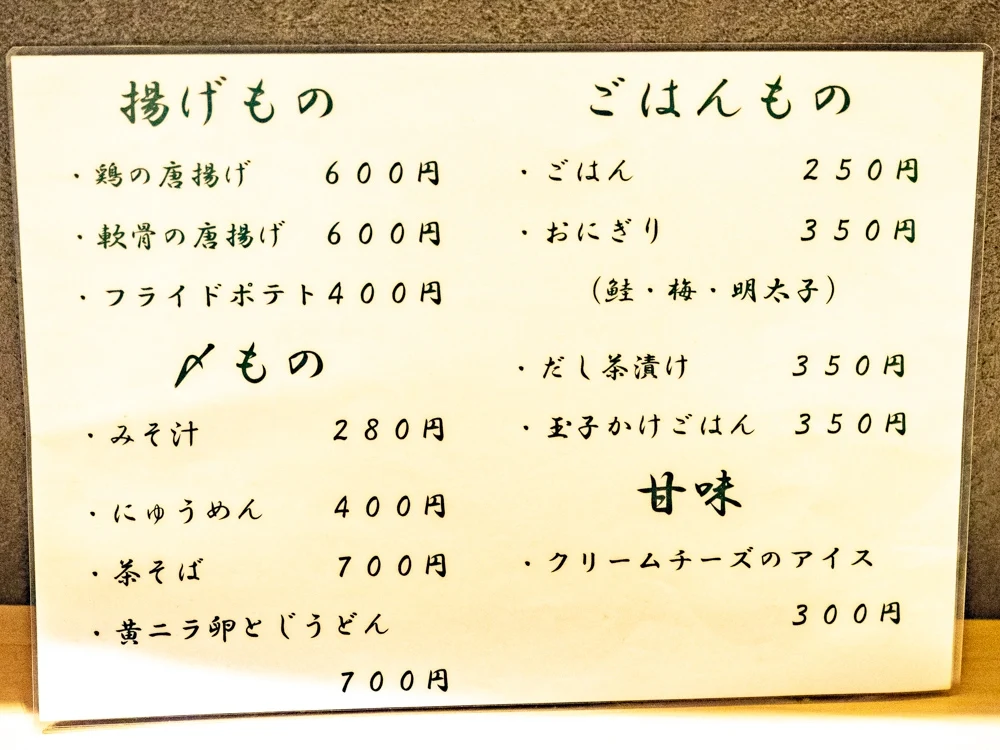 揚げもの
・鶏の唐揚げ ６００円
・軟骨の唐揚げ ６００円
・フライドポテト４００円
〆もの
・みそ汁 ２８０円
・にゅうめん ４００円
・茶そば ７００円
・黄ニラ卵とじうどん
７００円
ごはんもの
・ごはん ２５０円
・おにぎり ３５０円
（鮭・梅・明太子）
・だし茶漬け ３５０円
・玉子かけごはん ３５０円
甘味
・クリームチーズのアイス
３００円